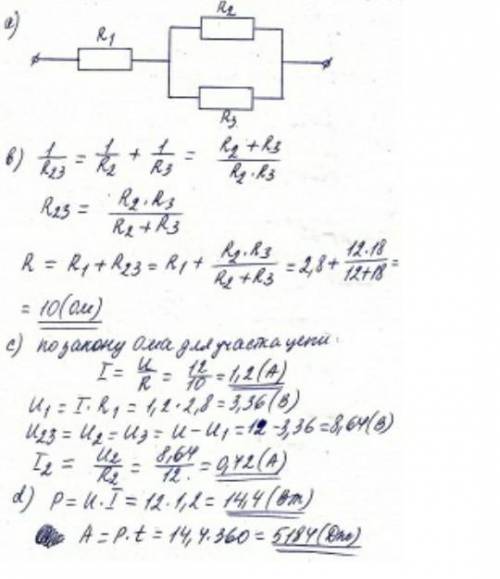 a)
R2
R1
R3
в) 1/R23 = 1/R2 + 1/R3 = (R2 + R3)/(R2 · R3)
R23 = (R2 · R3)/(R2 + R3)
R = R1 + R23 = R1 + (R2 · R3)/(R2 + R3) = 2,8 + (12·18)/(12+18) =
= 10 (Ом)
c) по закону Ома для участка цепи:
I = U/R = 12/10 = 1,2 (А)
U1 = I · R1 = 1,2 · 2,8 = 3,36 (В)
U23 = U2 = U3 = U - U1 = 12 - 3,36 = 8,64 (В)
I2 = U2/R2 = 8,64/12 = 0,72 (А)
d) P = U · I = 12 · 1,2 = 14,4 (Вт)
A = P · t = 14,4 · 360 = 5184 (Дж)